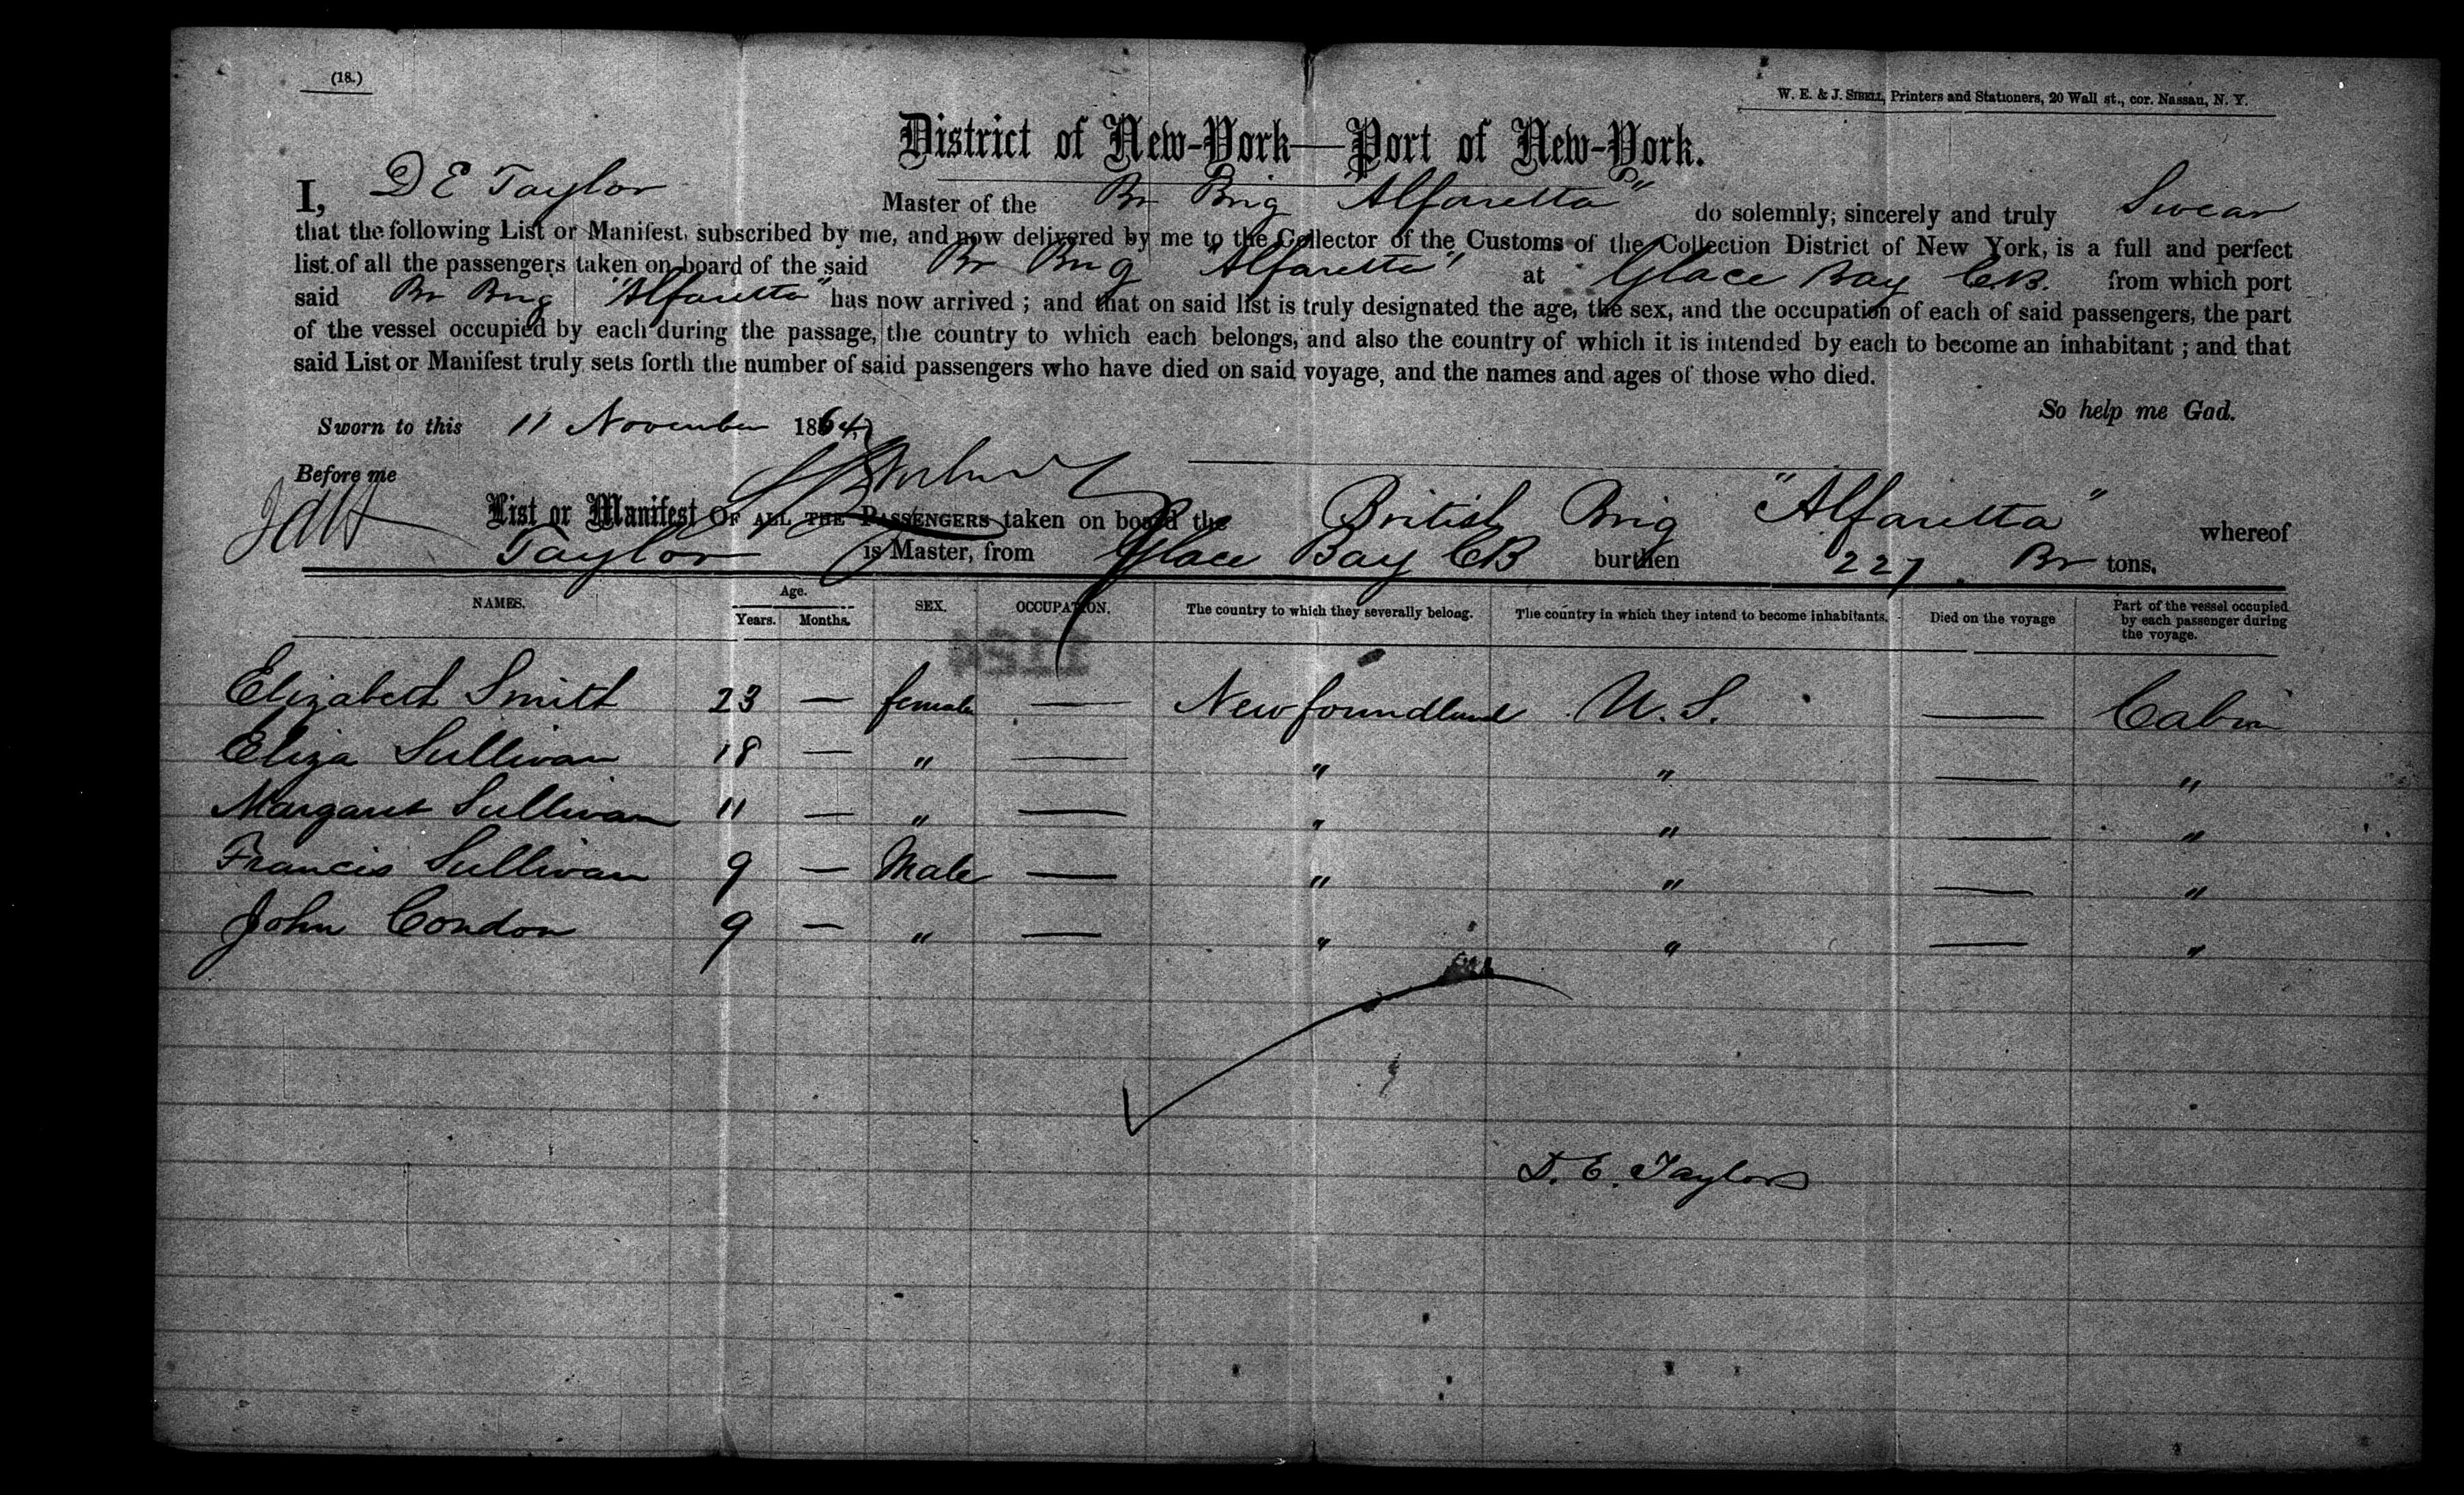 (18.)
W. E. & J. SIBELL, Printers and Stationers, 20 Wall st., cor. Nassau, N. Y.
District of New-York—Port of New-York.
I, D E Taylor Master of the Br Brig "Alfaretta" do solemnly, sincerely and truly Swear
that the following List or Manifest, subscribed by me, and now delivered by me to the Collector of the Customs of the Collection District of New York, is a full and perfect
list of all the passengers taken on board of the said Br Brig "Alfaretta" at Glace Bay CB. from which port
said Br Brig "Alfaretta" has now arrived ; and that on said list is truly designated the age, the sex, and the occupation of each of said passengers, the part
of the vessel occupied by each during the passage, the country to which each belongs, and also the country of which it is intended by each to become an inhabitant ; and that
said List or Manifest truly sets forth the number of said passengers who have died on said voyage, and the names and ages of those who died.
So help me God.
Sworn to this 11 November 1864
Before me
List or Manifest OF ALL THE PASSENGERS taken on board the British Brig "Alfaretta" whereof
Taylor is Master, from Glace Bay CB burthen 227 Br tons.
NAMES. Age. Years. Months. SEX. OCCUPATION. The country to which they severally belong. The country in which they intend to become inhabitants. Died on the voyage Part of the vessel occupied by each passenger during the voyage.
Elizabeth Smith 23 — female — Newfoundland U. S. — Cabin
Eliza Sullivan 18 — " — " " — "
Margaret Sullivan 11 — " — " " — "
Francis Sullivan 9 — Male — " " — "
John Condon 9 — " — " " — "
D. E. Taylor